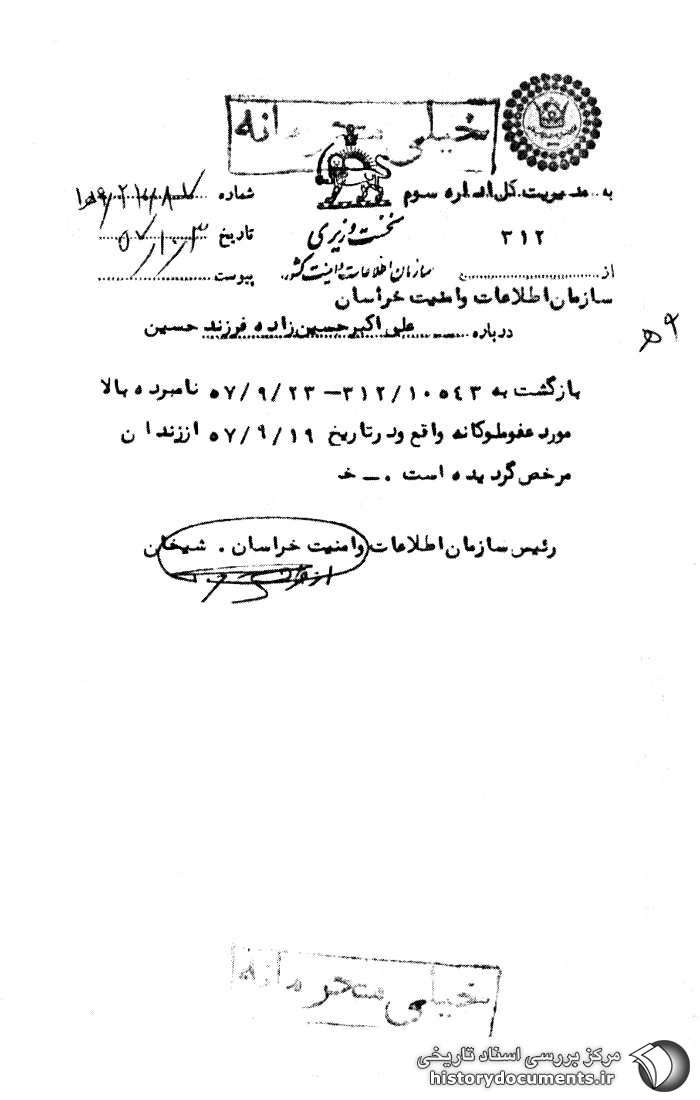 خیلی محرمانه
به مدیریت کل اداره سوم
شماره
۳۱۲
نخست وزیری
تاریخ ۵۷/۱۰/۳
از
سازمان اطلاعات و امنیت کشور
پیوست
سازمان اطلاعات و امنیت خراسان
درباره علی اکبر حسین زاده فرزند حسین
بازگشت به ۳۱۲/۱۰۵۴۳ – ۵۷/۹/۲۳ نامبرده بالا
مورد عفو ملوکانه واقع و در تاریخ ۵۷/۹/۱۹ از زندان
مرخص گردیده است . – خ
رئیس سازمان اطلاعات و امنیت خراسان . شیخان
خیلی محرمانه
مرکز بررسی اسناد تاریخی
historydocuments.ir